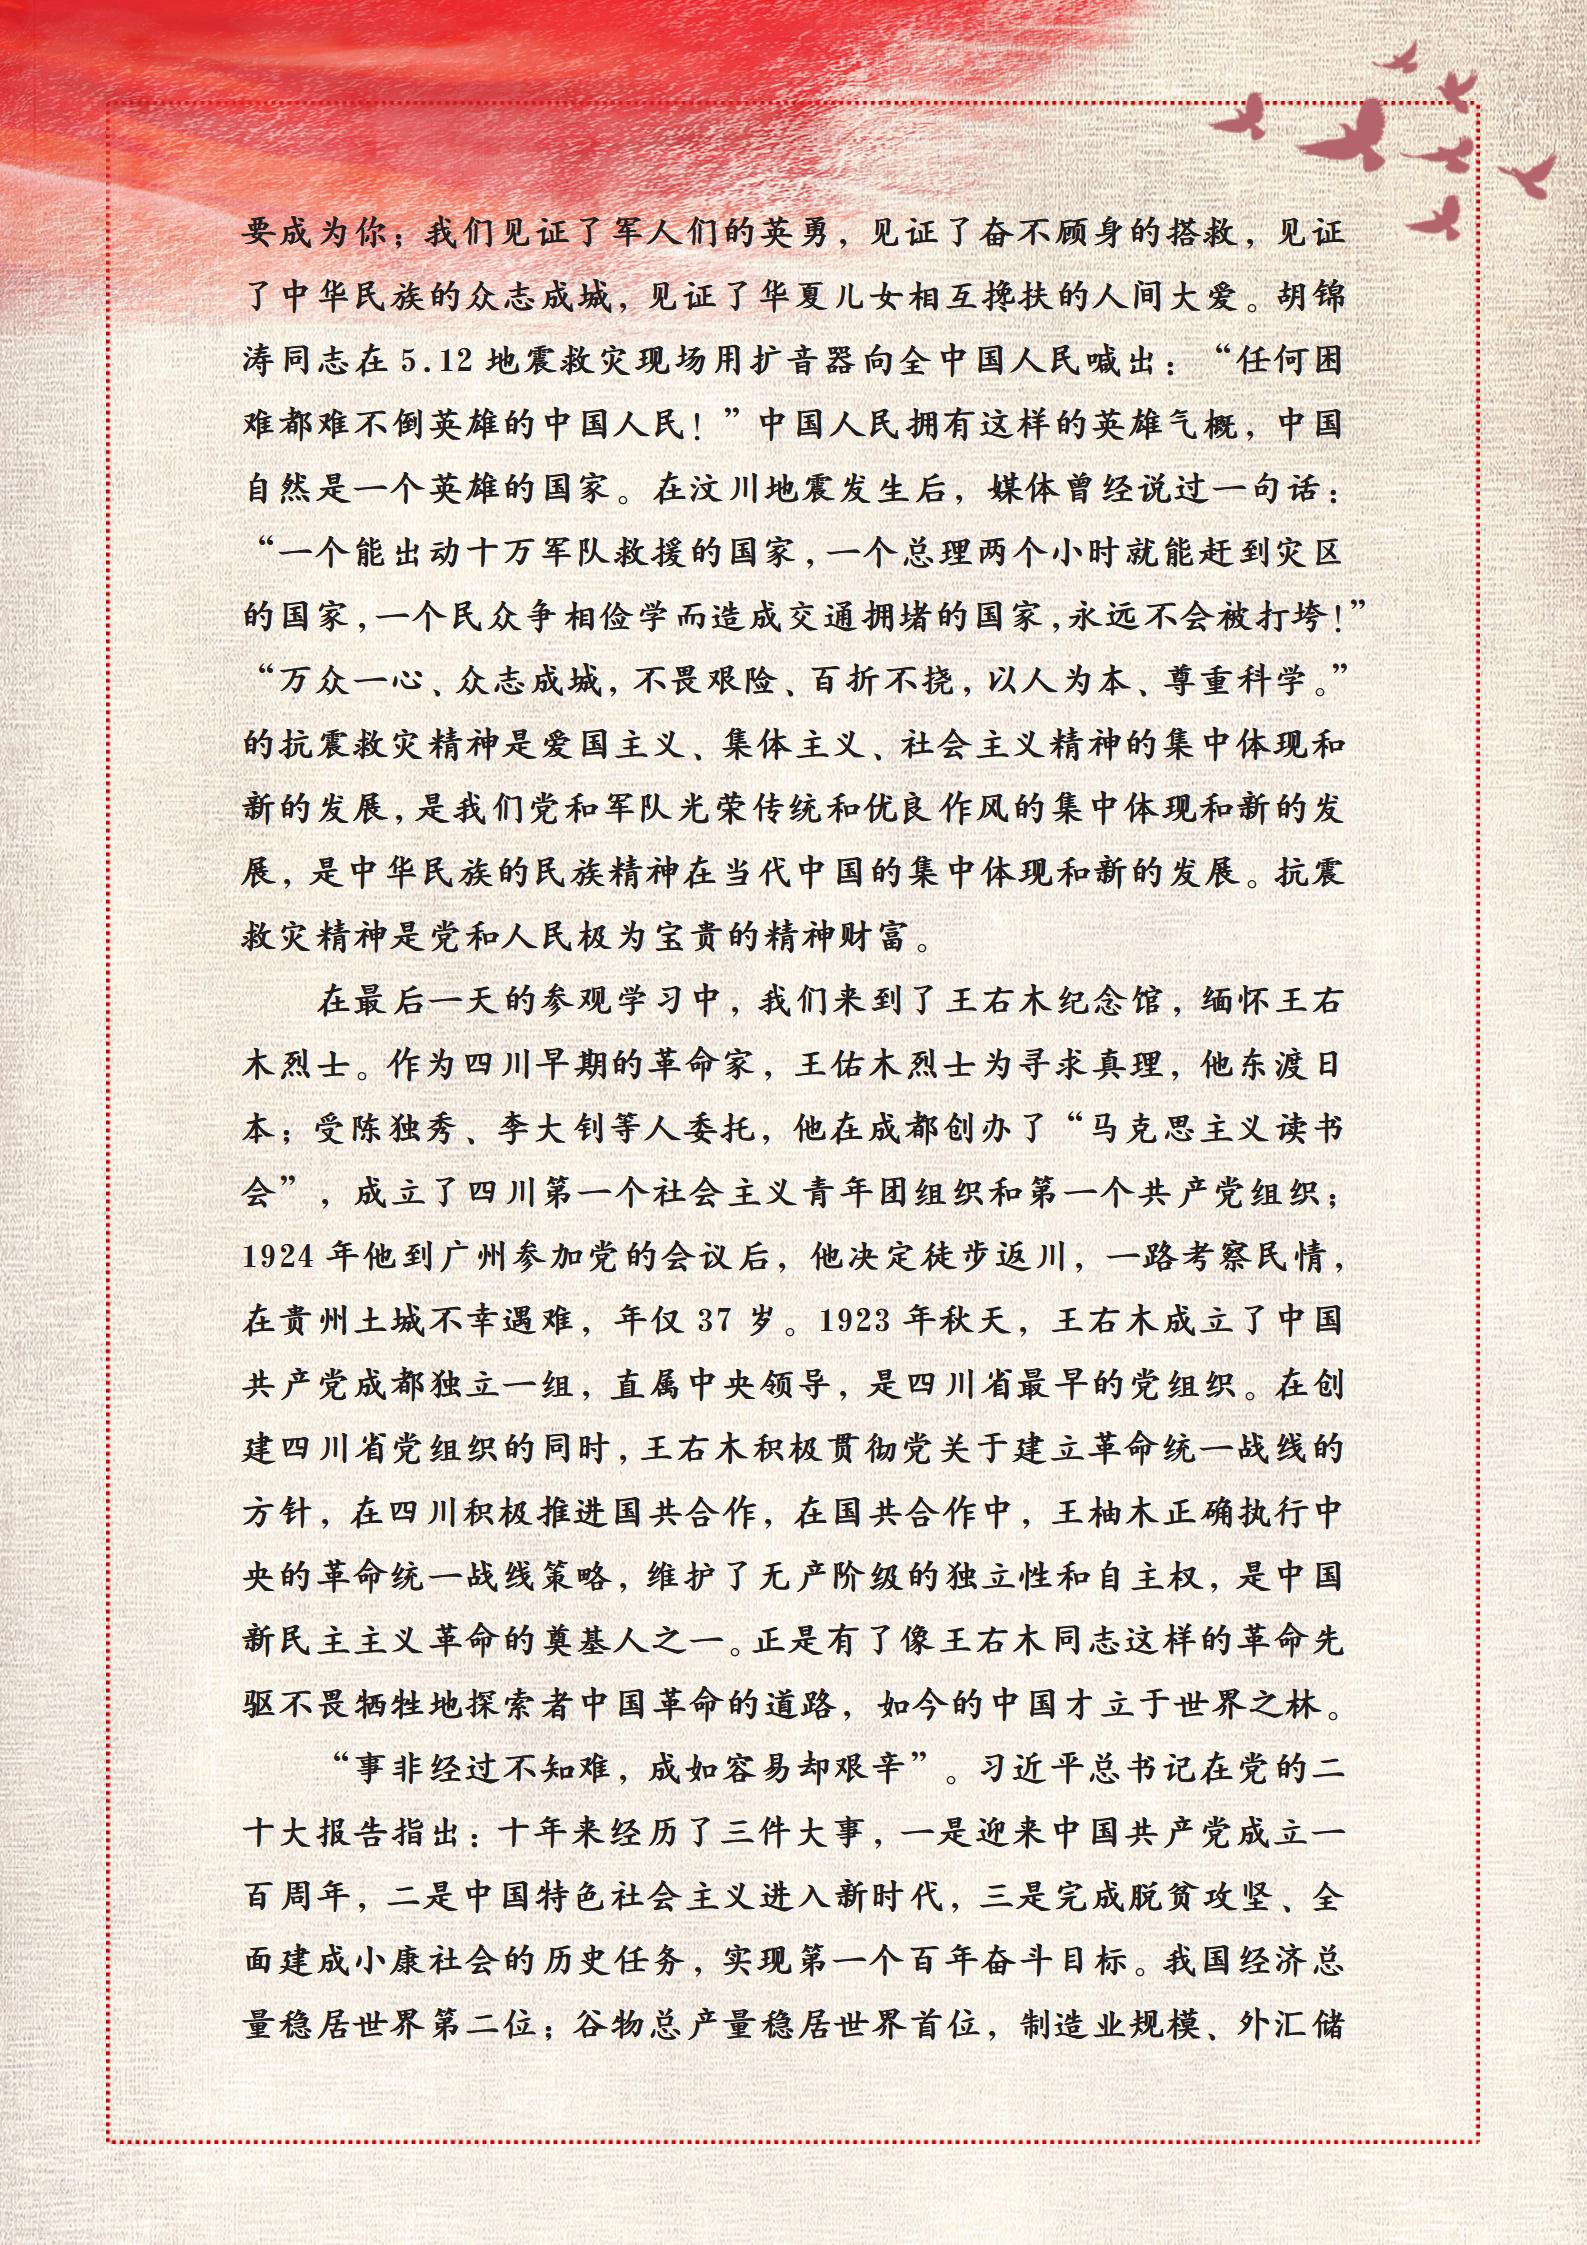 要成为你；我们见证了军人们的英勇，见证了奋不顾身的搭救，见证
了中华民族的众志成城，见证了华夏儿女相互搀扶的人间大爱。胡锦
涛同志在 5.12 地震救灾现场用扩音器向全中国人民喊出：“任何困
难都难不倒英雄的中国人民！”中国人民拥有这样的英雄气概，中国
自然是一个英雄的国家。在汶川地震发生后，媒体曾经说过一句话：
“一个能出动十万军队救援的国家,一个总理两个小时就能赶到灾区
的国家,一个民众争相俭学而造成交通拥堵的国家,永远不会被打垮!”
“万众一心、众志成城，不畏艰险、百折不挠，以人为本、尊重科学。”
的抗震救灾精神是爱国主义、集体主义、社会主义精神的集中体现和
新的发展，是我们党和军队光荣传统和优良作风的集中体现和新的发
展，是中华民族的民族精神在当代中国的集中体现和新的发展。抗震
救灾精神是党和人民极为宝贵的精神财富。
在最后一天的参观学习中，我们来到了王右木纪念馆，缅怀王右
木烈士。作为四川早期的革命家，王佑木烈士为寻求真理，他东渡日
本；受陈独秀、李大钊等人委托，他在成都创办了“马克思主义读书
会”，成立了四川第一个社会主义青年团组织和第一个共产党组织；
1924 年他到广州参加党的会议后，他决定徒步返川，一路考察民情，
在贵州土城不幸遇难，年仅 37 岁。1923 年秋天，王右木成立了中国
共产党成都独立一组，直属中央领导，是四川省最早的党组织。在创
建四川省党组织的同时，王右木积极贯彻党关于建立革命统一战线的
方针，在四川积极推进国共合作，在国共合作中，王柚木正确执行中
央的革命统一战线策略，维护了无产阶级的独立性和自主权，是中国
新民主主义革命的奠基人之一。正是有了像王右木同志这样的革命先
驱不畏牺牲地探索者中国革命的道路，如今的中国才立于世界之林。
“事非经过不知难，成如容易却艰辛”。习近平总书记在党的二
十大报告指出：十年来经历了三件大事，一是迎来中国共产党成立一
百周年，二是中国特色社会主义进入新时代，三是完成脱贫攻坚、全
面建成小康社会的历史任务，实现第一个百年奋斗目标。我国经济总
量稳居世界第二位；谷物总产量稳居世界首位，制造业规模、外汇储